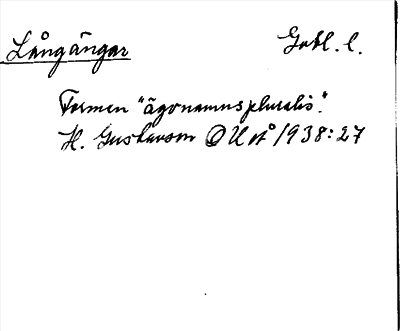 Långängar Gotl. l.
Formen "ägonamnspluralis".
H. Gustavson OUÅ 1938:27